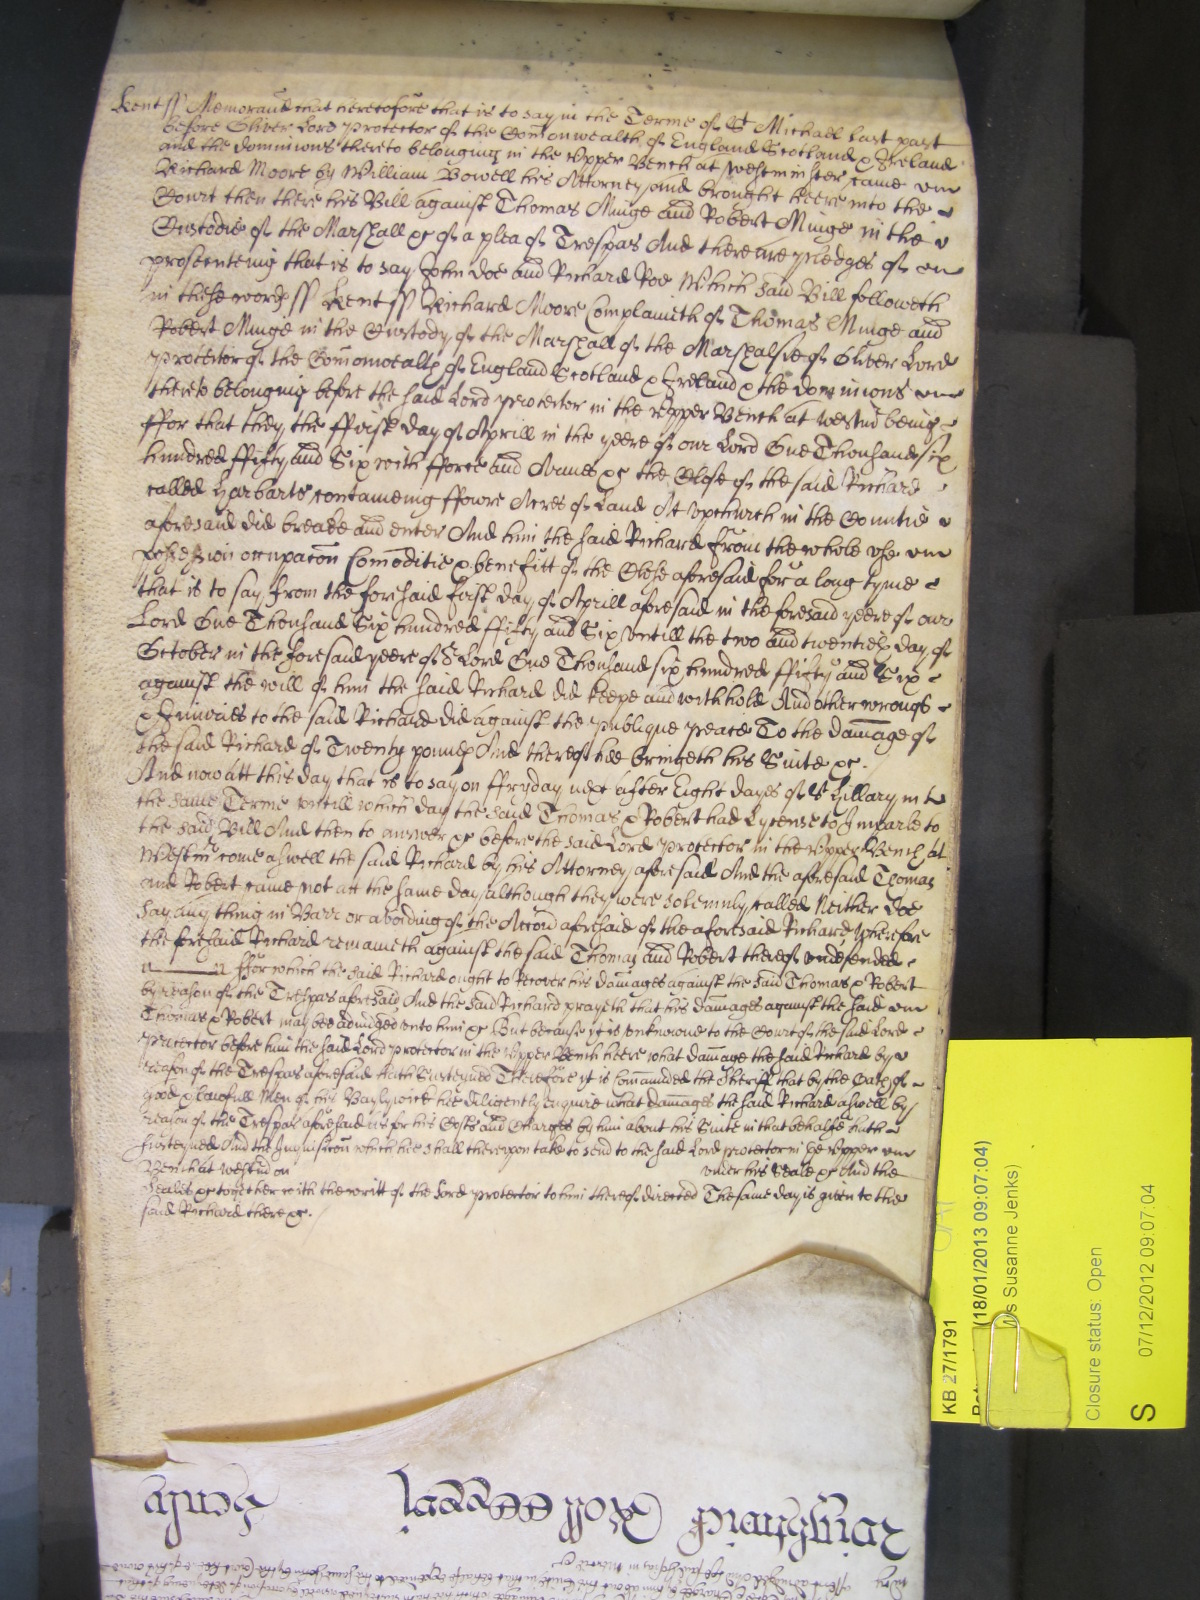 Kent ss Memorand that heretofore that is to say in the Terme of St Michael last past
before Oliver Lord Protector of the Comonwealth of England Scotland & Ireland
and the dominions thereto belonging in the Upper Bench at Westminster came
Richard Moore by William Bowell his Attorney and brought heere into the
Court then there his Bill against Thomas Minge and Robert Minge in the
Custodie of the Marshall &c of a plea of Trespas And there are pledges of
prosecuteing that is to say John Doe and Richard Roe Which said Bill followeth
in these words ss Kent ss Richard Moore Complaineth of Thomas Minge and
Robert Minge in the Custody of the Marshall of the Marshalsie of Oliver Lord
Protector of the Comonwealth of England Scotland & Ireland & the dominions
thereto belonging before the said Lord Protector in the Upper Bench at Westm being
ffor that they the ffirst day of Aprill in the yeere of our Lord One Thousand six
hundred ffifty and Six with fforce and Armes &c the Close of the said Richard
called Harbarts conteineing ffowre Acres of Land At Upchurch in the Countie
aforesaid did breake and enter And him the said Richard from the whole use
possession occupacon Comoditie & benefitt of the Close aforesaid for a long tyme
that is to say from the foresaid first day of Aprill aforesaid in the foresaid yeere of our
Lord One Thousand Six hundred ffifty and Six untill the two and twentieth day of
October in the foresaid yeere of o Lord One Thousand six hundred ffifty and Six
against the will of him the said Richard did keepe and withhold And other wrongs
& Iniuries to the said Richard did against the publique peace To the damage of
the said Richard of Twenty pounds And thereof hee bringeth his Suite &c.
And now att this day that is to say on ffryday next after Eight dayes of St Hillary in
the same Terme untill which day the said Thomas & Robert had Lycense to Imparle to
the said Bill And then to answer &c before the said Lord Protector in the Upper Bench at
Westm come aswell the said Richard by his Attorney aforesaid And the aforesaid Thomas
and Robert came not att the same day although they were solemnly called Neither doe
say any thing in Barr or avoiding of the Accon aforesaid of the aforesaid Richard Wherefore
the foresaid Richard remaineth against the said Thomas and Robert thereof undefended
ffor which the said Richard ought to Recover his damages against the said Thomas & Robert
by reason of the Trespas aforesaid And the said Richard prayeth that his damages against the said
Thomas & Robert may bee adiudged unto him &c But because it is unknowne to the Court of the said Lord
Protector before him the said Lord Protector in the Upper Bench heere what damage the said Richard by
reason of the Trespas aforesaid hath Susteyned Therefore it is Comaunded the Sheriff that by the Oath of
good & lawfull Men of his Baylywick hee diligently enquire what damages the said Richard aswell by
reason of the Trespas aforesaid as for his Costs and Charges by him about his Suite in that behalfe hath
susteyned And the Inquisicon which hee shall thereupon take to send to the said Lord protector in the Upper
Bench at Westm on under his Seale &c And the
Seales &c together with the writt of the Lord Protector to him thereof directed The same day is given to the
said Richard there &c.
KB 27/1791
(18/01/2013 09:07:04)
Ms Susanne Jenks)
Closure status: Open
S
07/12/2012 09:07:04
Roll